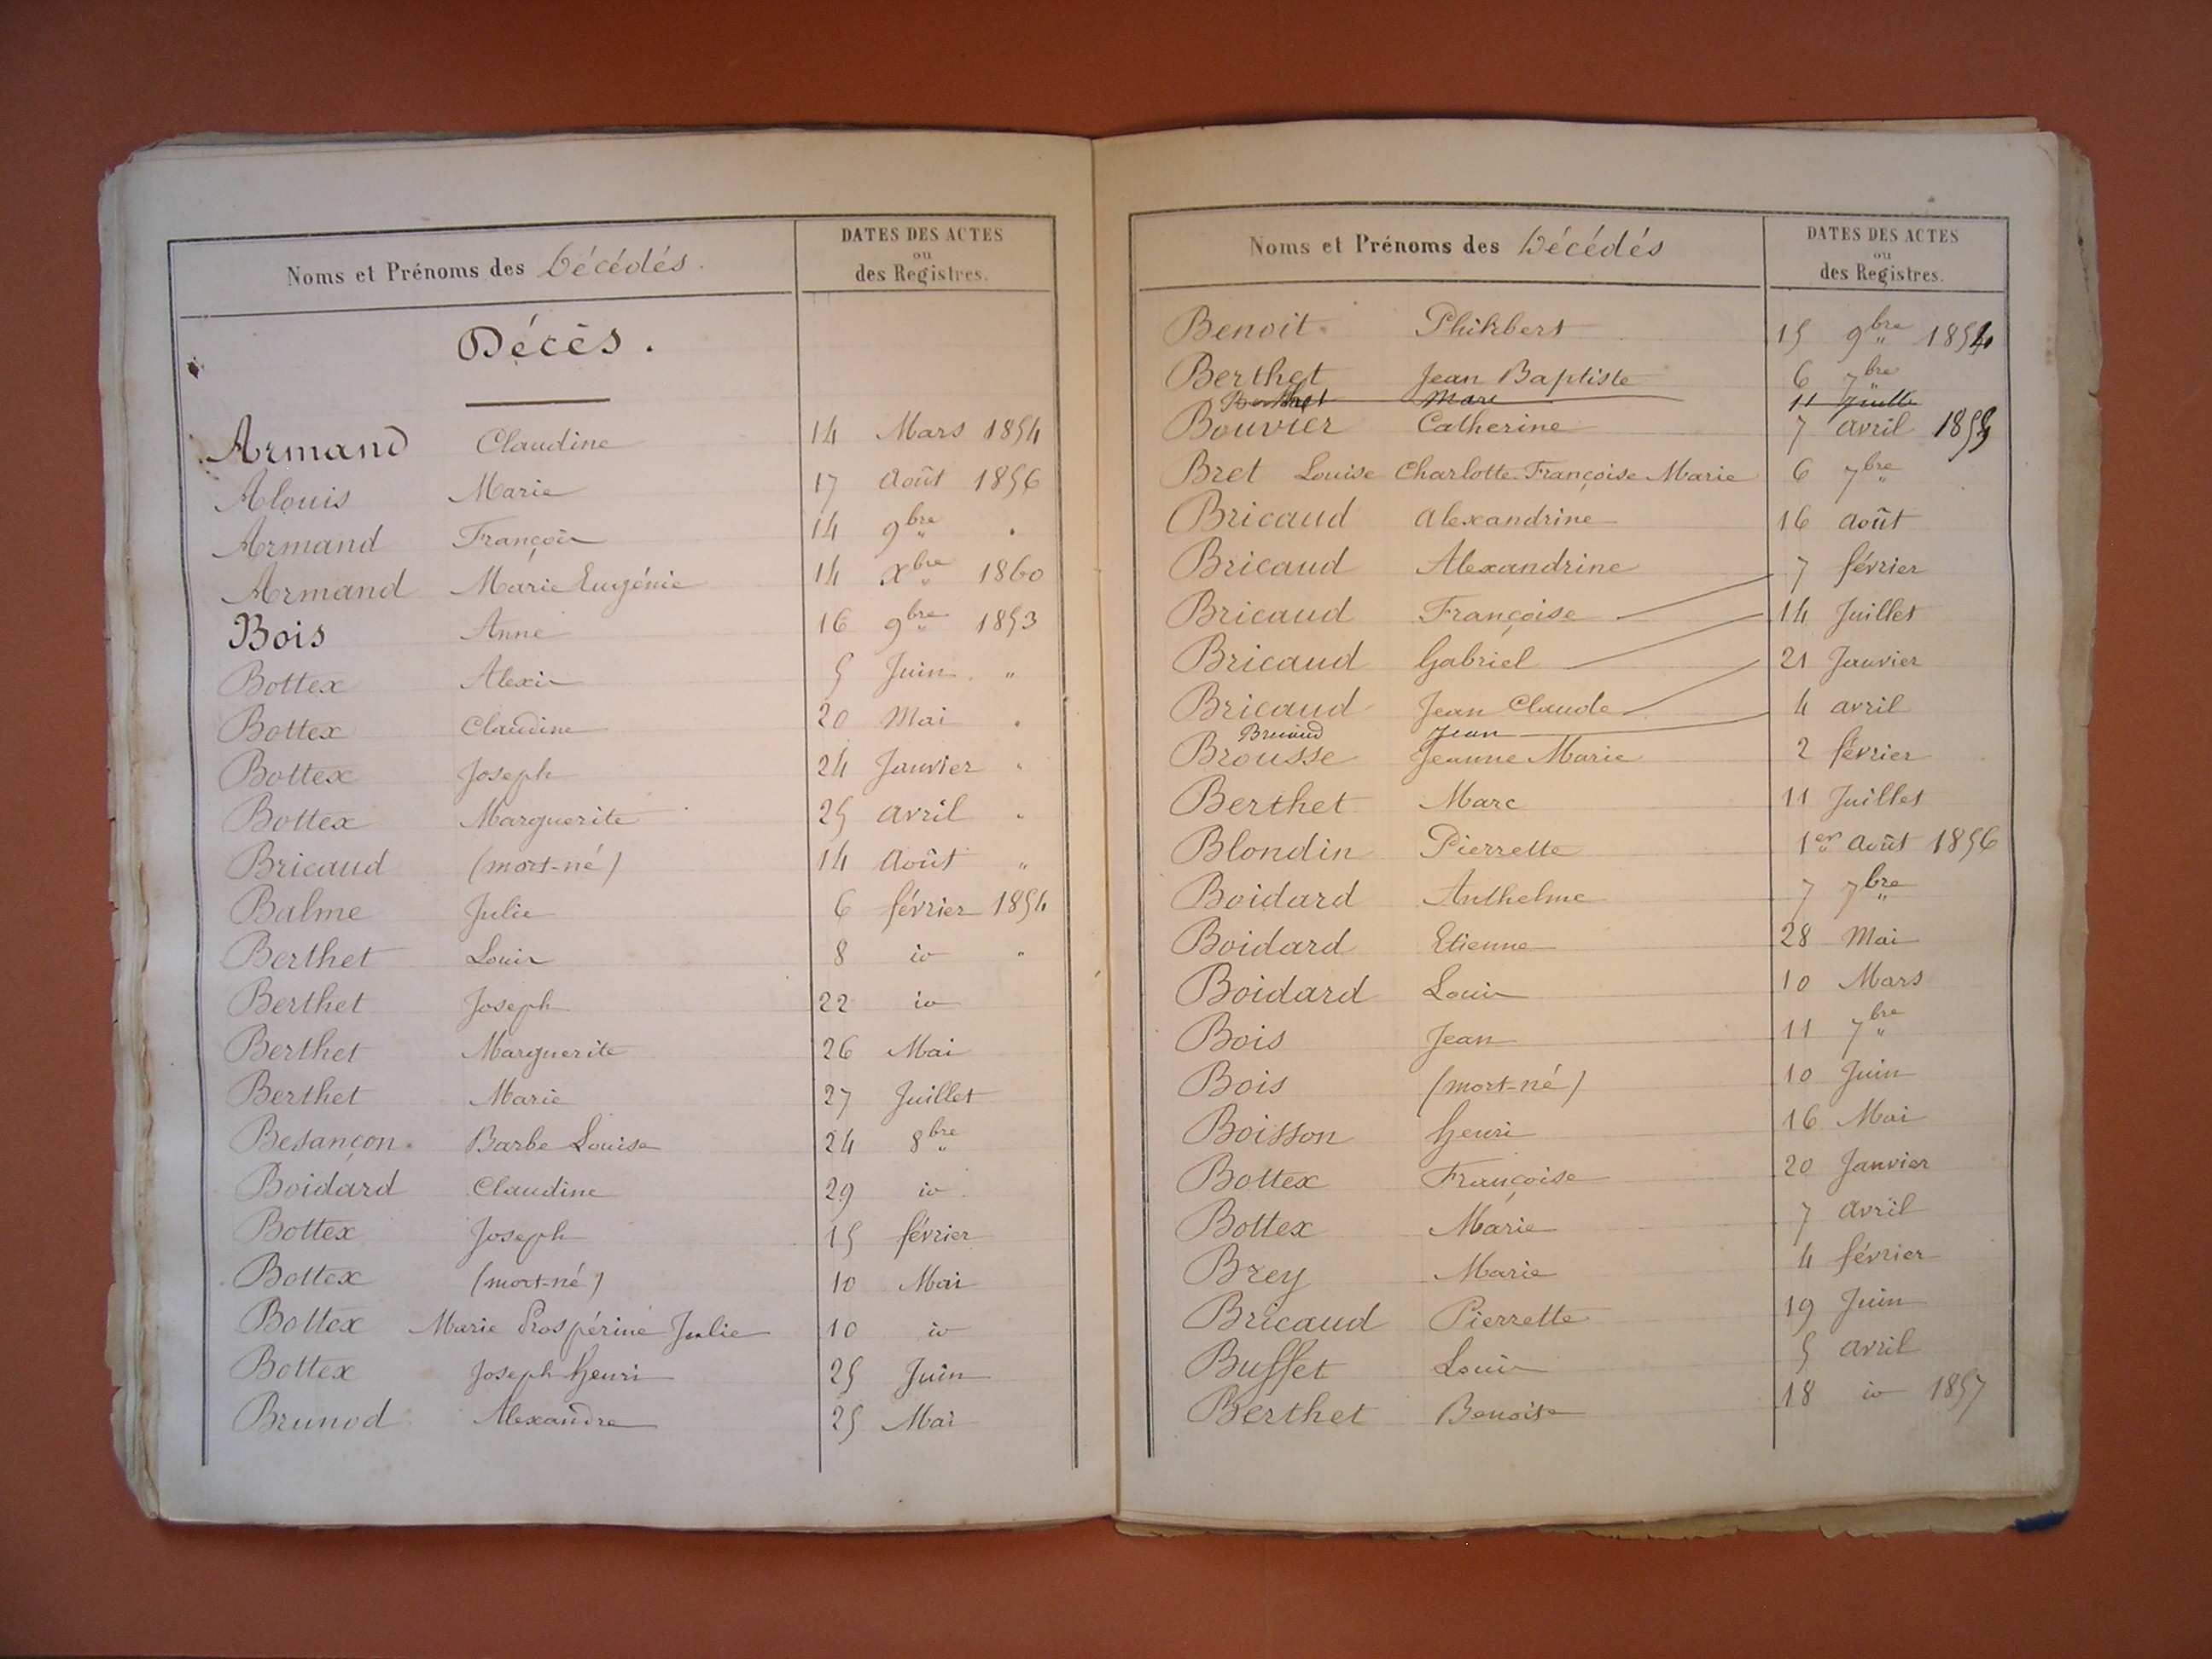 Noms et Prénoms des Décédés.
DATES DES ACTES
ou
des Registres.
Décès.
Armand Claudine 14 Mars 1854
Alouis Marie 17 Août 1856
Armand François 14 9bre "
Armand Marie Eugénie 14 Xbre 1860
Bois Anne 16 9bre 1853
Bottex Alexis 5 Juin "
Bottex Claudine 20 Mai "
Bottex Joseph 24 Janvier "
Bottex Marguerite 25 avril "
Bricaud (mort-né) 14 Août "
Balme Julie 6 février 1854
Berthet Louis 8 id "
Berthet Joseph 22 id
Berthet Marguerite 26 Mai
Berthet Marie 27 Juillet
Besançon Barbe Louise 24 8bre
Boidard Claudine 29 id
Bottex Joseph 15 février
Bottex (mort-né) 10 Mai
Bottex Marie Prospérine Julie 10 id
Bottex Joseph Henri 25 Juin
Brunod Alexandre 25 Mai
Noms et Prénoms des Décédés
DATES DES ACTES
ou
des Registres.
Benoit Philibert 15 9bre 1854
Berthet Jean Baptiste 6 7bre
Berthet Marc 11 Juillet
Bouvier Catherine 7 avril 1855
Bret Louise Charlotte Françoise Marie 6 7bre
Bricaud Alexandrine 16 août
Bricaud Alexandrine 7 février
Bricaud Françoise 14 Juillet
Bricaud Gabriel 21 Janvier
Bricaud Jean Claude 4 avril
Bricaud Jean
Brousse Jeanne Marie 2 février
Berthet Marc 11 Juillet
Blondin Pierrette 1er Août 1856
Boidard Anthelme 7 7bre
Boidard Etienne 28 Mai
Boidard Louis 10 Mars
Bois Jean 11 7bre
Bois (mort-né) 10 Juin
Boisson Henri 16 Mai
Bottex Françoise 20 Janvier
Bottex Marie 7 avril
Brey Marie 4 février
Bricaud Pierrette 19 Juin
Buffet Louis 5 avril
Berthet Benoite 18 id 1857